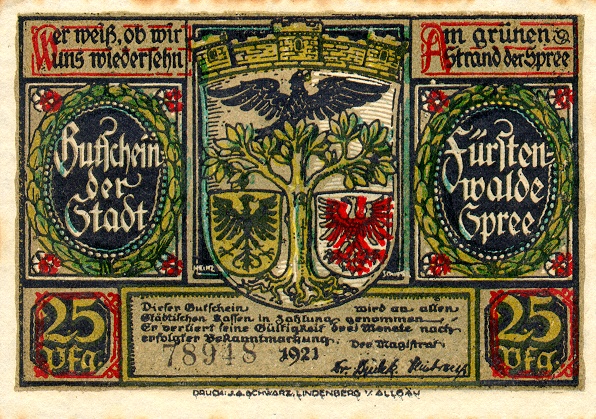 Wer weiß, ob wir
uns wiedersehn
Am grünen
Strand der Spree
Gutschein
der
Stadt
Fürsten-
walde
Spree
HEINZ
25
Pfg.
25
Pfg.
Dieser Gutschein wird an allen
Städtischen Kassen in Zahlung genommen
Er verliert seine Gültigkeit drei Monate nach
erfolgter Bekanntmachung. Der Magistrat
78948 1921
DRUCK: J.A. SCHWARZ, LINDENBERG I/ ALLGÄU